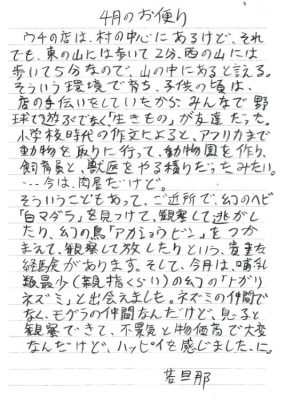 4月のお便り
ウチの店は、村の中心にあるけど、それ
でも、東の山には歩いて2分、西の山には
歩いて5分なので、山の中にあると言える。
そういう環境で育ち、子供の頃は、
店の手伝いをしていたから、みんなで野
球で遊ぶでなく「生きもの」が友達だった。
小学校時代の作文によると、アフリカまで
動物を取りに行って、動物園を作り、
飼育員と、獣医をやる積りだったみたい。
…今は、肉屋だけど。
そういうこともあって、ご近所で、幻のヘビ
「白マダラ」を見つけて、観察して逃がし
たり、幻の鳥「アカショウビン」をつか
まえて、観察して放したりという、貴重な
経験があります。そして、今月は、哺乳
類最少（親指くらい）の幻の「トガリ
ネズミ」と出会えました。ネズミの仲間で
なく、モグラの仲間なんだけど、見ると
観察できて、不景気と物価高で大変
なんだけど、ハッピィを感じました、に。
若旦那